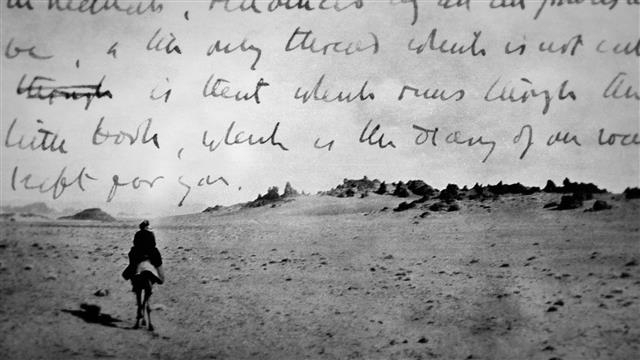 by an
be, & the only thread which is not cut
through is that which runs through
little book, which is the diary of
kept for you.